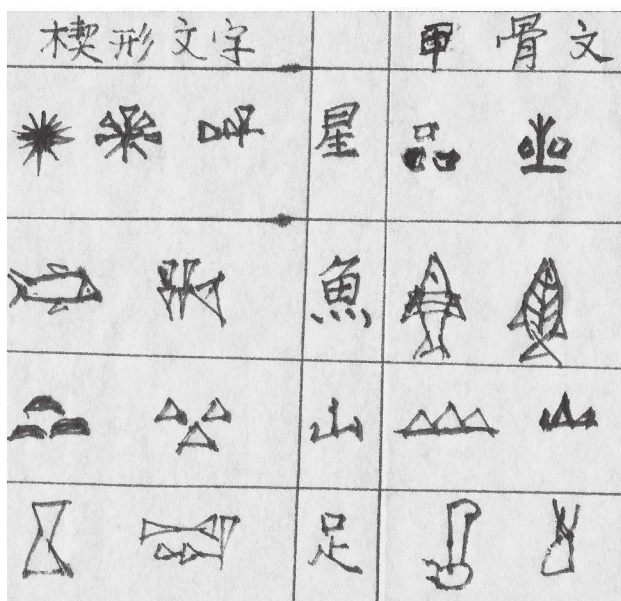 楔形文字 甲骨文
星
魚
山
足